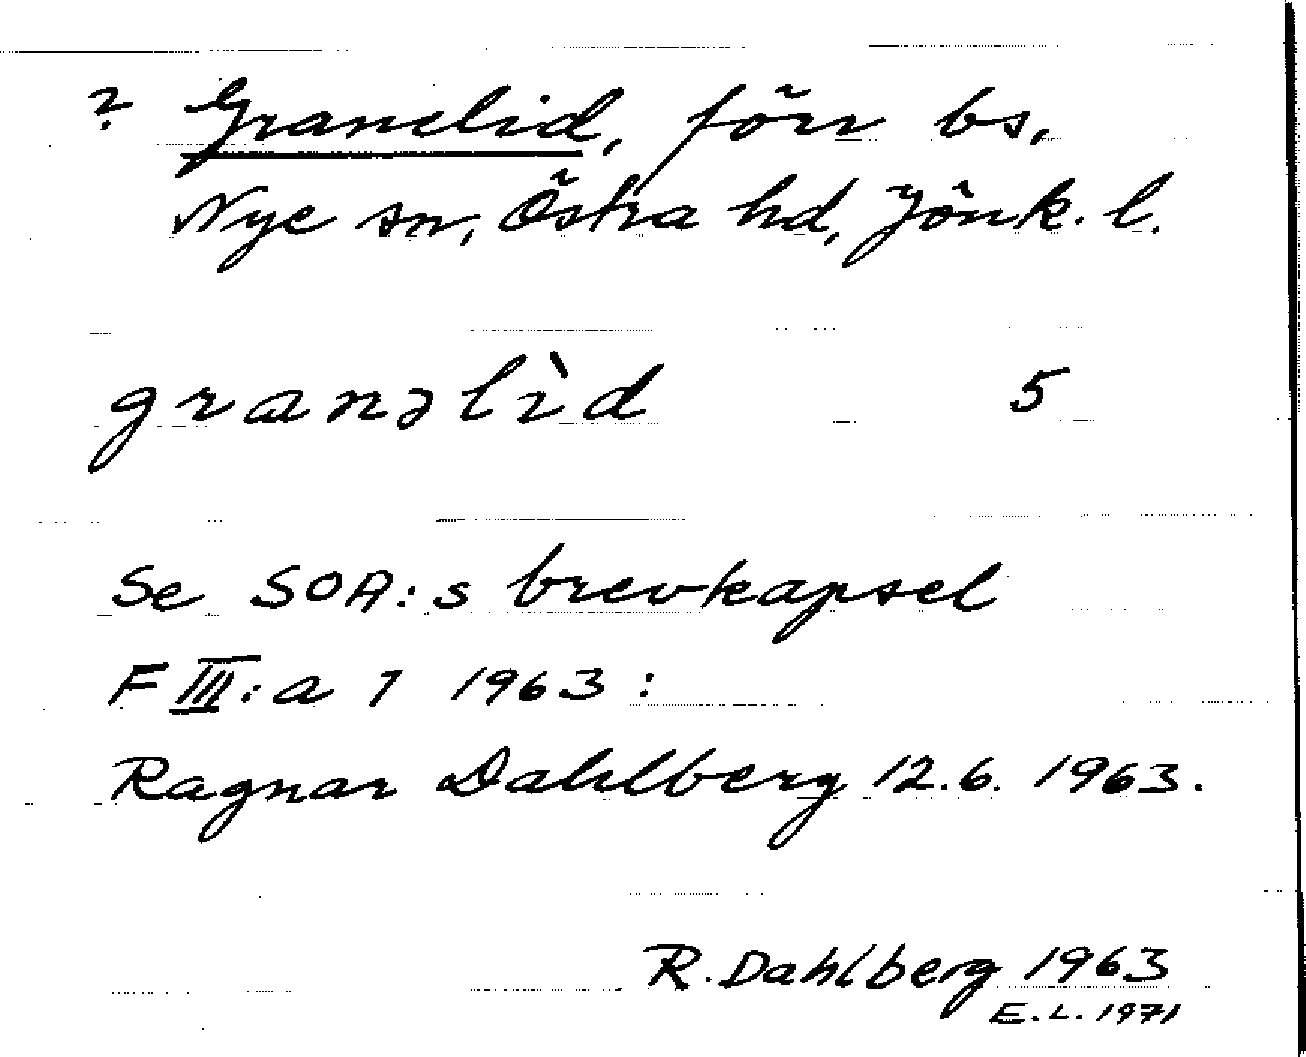 ? Granelid, förr bs,
Nye sn, Östra hd, Jönk. l.
granəlìd 5
Se SOA:s brevkapsel
F III:a 7 1963:
Ragnar Dahlberg 12.6. 1963.
R. Dahlberg 1963
E. L. 1971